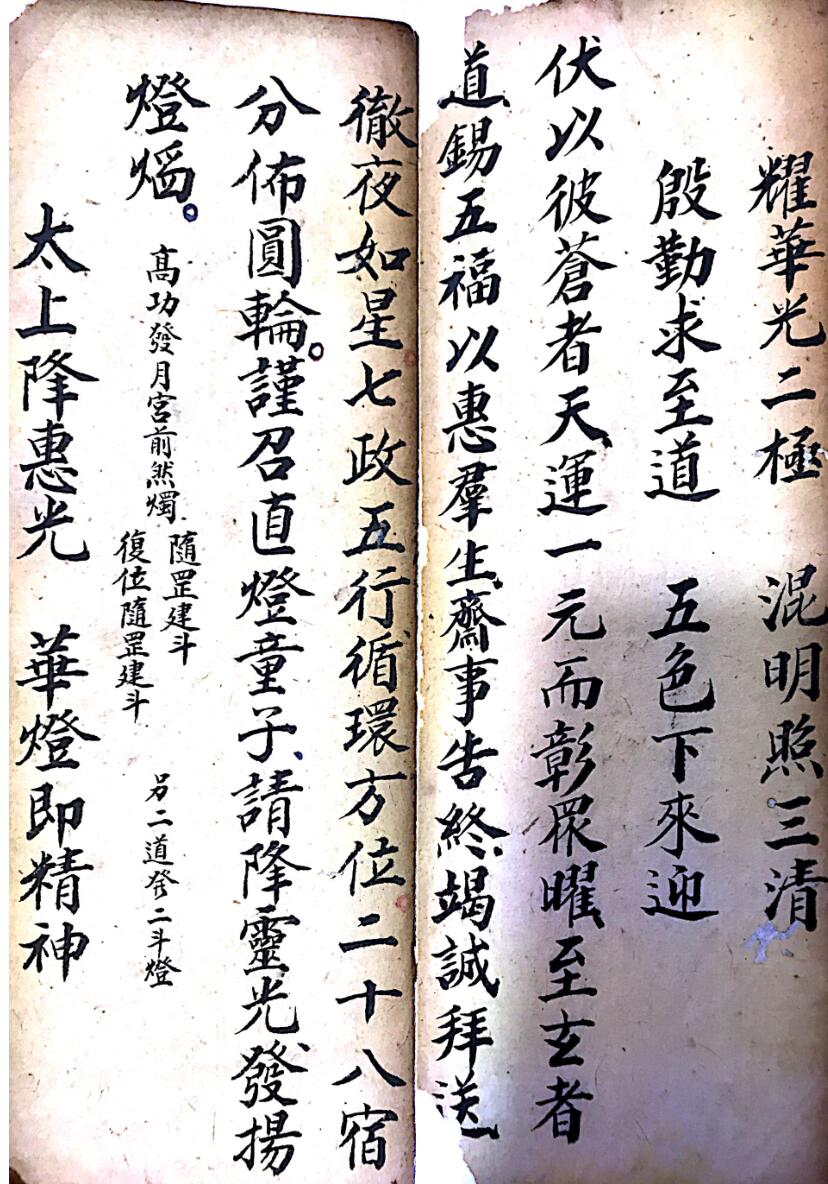 耀華光二極　混明照三清
殷勤求至道　五色下來迎
伏以彼蒼者天運一元而彰眾曜至玄者
道錫五福以惠羣生齋事告終竭誠拜送
徹夜如星七政五行循環方位二十八宿
分佈圓輪。謹召直燈童子請降靈光發揚
燈熖。高功發月宮前然燭
隨罡建斗
復位隨罡建斗
另二道發二斗燈
太上降惠光　華燈即精神